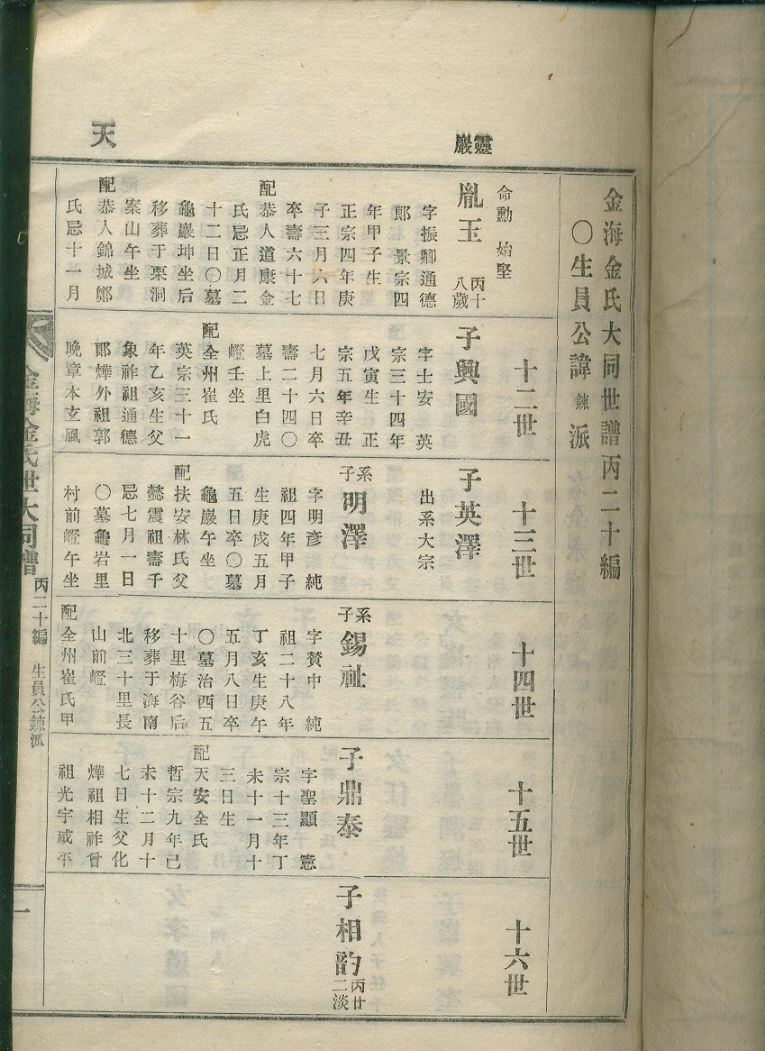 靈巖
天
金海金氏大同世譜丙二十編
〇生員公諱鍊派
十二世
十三世
十四世
十五世
十六世
命勳 始堅
胤玉 丙十
八歲
字振卿通德
郞 景宗四
年甲子生
正宗四年庚
子三月六日
卒壽六十七
配恭人道康金
氏忌正月二
十二日〇墓
龜巖坤坐后
移葬于栗洞
案山午坐
配恭人錦城鄭
氏忌十一月
子興國
字士安 英
宗三十四年
戊寅生 正
宗五年辛丑
七月六日卒
壽二十四〇
墓上里白虎
嶝壬坐
配全州崔氏
英宗三十一
年乙亥生父
象祚祖通德
郞燁外祖郭
晩章本玄風
子英澤
出系大宗
系子 明澤
字明彥 純
祖四年甲子
生庚戌五月
五日卒〇墓
龜巖午坐
配扶安林氏父
懿震祖壽千
忌七月一日
〇墓龜岩里
村前嶝午坐
系子 錫祉
字賛中 純
祖二十八年
丁亥生庚午
五月八日卒
〇墓治西五
十里梅谷后
移葬于海南
北三十里長
山前嶝
配全州崔氏甲
子鼎泰
字聖顯 憲
宗十三年丁
未十一月十
三日生
配天安全氏
哲宗九年己
未十二月十
七日生父化
燁祖相祚曾
祖光宇咸平
子相韵 丙廿
二淡
金海金氏世大同譜 丙二十編 生員公鍊派
一